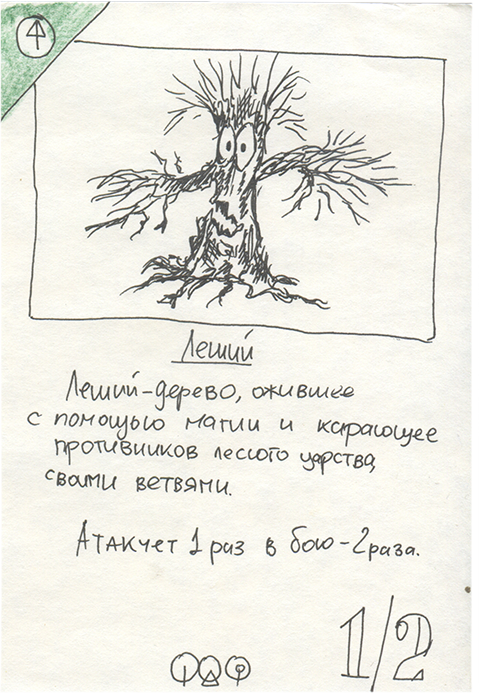 4
Леший
Леший-дерево, ожившее
с помощью магии и карающее
противников лесного царства,
своими ветвями.
Атакует 1 раз в бою-2 раза.
1/2